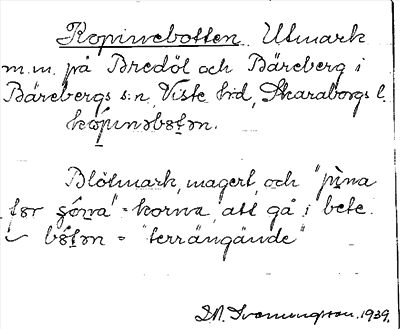 Kopinebotten. Utmark
m.m. på Bredöl och Bäreberg i
Bärebergs s:n, Viste hd, Skaraborgs l.
kópinəbótən.
Blötmark, magert, och "pìna
för kórna" = korna, att gå i bete.
bótən = "terrängände"
1939.